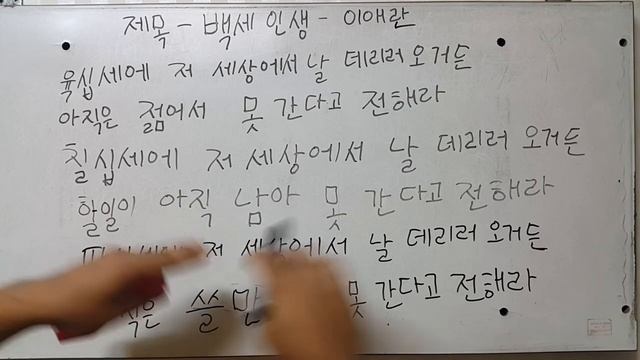 제목 - 백세 인생 - 이애란
육십세에 저 세상에서 날 데리러 오거든
아직은 젊어서 못 간다고 전해라
칠십세에 저 세상에서 날 데리러 오거든
할일이 아직 남아 못 간다고 전해라
저 세상에서 날 데리러 오거든
쓸만 못 간다고 전해라